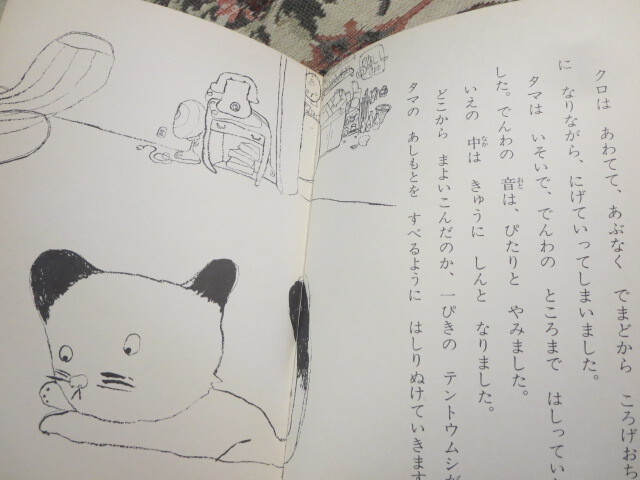 クロは　あわてて、あぶなく　でまどから　ころげおち
に　なりながら、にげていってしまいました。
タマは　いそいで、でんわの　ところまで　はしってい
した。でんわの　音は、ぴたりと　やみました。
いえの　中は　きゅうに　しんと　なりました。
どこから　まよいこんだのか、一ぴきの　テントウムシが
タマの　あしもとを　すべるように　はしりぬけていきます